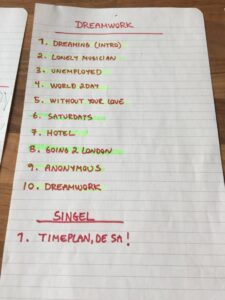 DREAMWORK
1. DREAMING (INTRO)
2. LONELY MUSICIAN
3. UNEMPLOYED
4. WORLD 2DAY
5. WITHOUT YOUR LOVE
6. SATURDAYS
7. HOTEL
8. GOING 2 LONDON
9. ANONYMOUS
10. DREAMWORK
SINGEL
1. TIMEPLAN, DE SA!